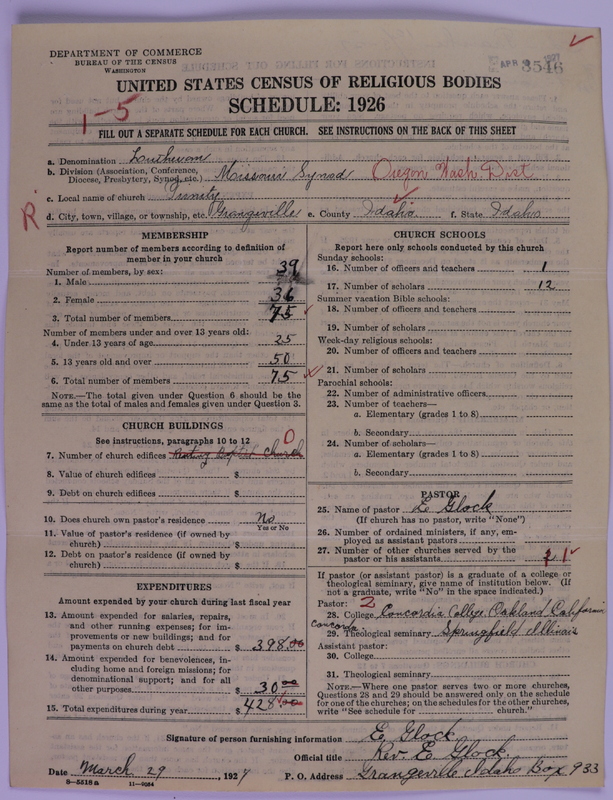 DEPARTMENT OF COMMERCE
BUREAU OF THE CENSUS
WASHINGTON
APR 1927
3546
UNITED STATES CENSUS OF RELIGIOUS BODIES
SCHEDULE: 1926
1-5
FILL OUT A SEPARATE SCHEDULE FOR EACH CHURCH. SEE INSTRUCTIONS ON THE BACK OF THIS SHEET
a. Denomination Lutheran
b. Division (Association, Conference, Diocese, Presbytery, Synod, etc.) Missouri Synod Oregon Wash. Dist
c. Local name of church Trinity
R
d. City, town, village, or township, etc. Grangeville e. County Idaho f. State Idaho
MEMBERSHIP
Report number of members according to definition of
member in your church
Number of members, by sex:
1. Male 39
2. Female 36
3. Total number of members 75
Number of members under and over 13 years old:
4. Under 13 years of age 25
5. 13 years old and over 50
6. Total number of members 75
NOTE.—The total given under Question 6 should be
same as the total of males and females given under Question 3.
CHURCH BUILDINGS
See instructions, paragraphs 10 to 12
7. Number of church edifices Renting Baptist Church 0
8. Value of church edifices $
9. Debt on church edifices $
10. Does church own pastor's residence No
Yes or No
11. Value of pastor's residence (if owned by
church) $
12. Debt on pastor's residence (if owned by
church) $
EXPENDITURES
Amount expended by your church during last fiscal year
13. Amount expended for salaries, repairs,
and other running expenses; for im-
provements or new buildings; and for
payments on church debt $ 398.00
14. Amount expended for benevolences, in-
cluding home and foreign missions; for
denominational support; and for all
other purposes $ 30.00
15. Total expenditures during year $ 428.00
CHURCH SCHOOLS
Report here only schools conducted by this church
Sunday schools:
16. Number of officers and teachers 1
17. Number of scholars 12
Summer vacation Bible schools:
18. Number of officers and teachers
19. Number of scholars
Week-day religious schools:
20. Number of officers and teachers
21. Number of scholars
Parochial schools:
22. Number of administrative officers
23. Number of teachers—
a. Elementary (grades 1 to 8)
b. Secondary
24. Number of scholars—
a. Elementary (grades 1 to 8)
b. Secondary
PASTOR
25. Name of pastor E. Glock
(If church has no pastor, write "None")
26. Number of ordained ministers, if any, em-
ployed as assistant pastors
27. Number of other churches served by the
pastor or his assistants 1
If pastor (or assistant pastor) is a graduate of a college or
theological seminary, give name of institution below. (If
not a graduate, write "No" in the space indicated.)
Pastor: 2
28. College Concordia College, Oakland California
Concordia
29. Theological seminary Springfield Illinois
Assistant pastor:
30. College
31. Theological seminary
NOTE.—Where one pastor serves two or more churches,
Questions 28 and 29 should be answered only on the schedule
for one of the churches; on the schedules for the other churches,
write "See schedule for church."
Signature of person furnishing information E. Glock
Official title Rev. E. Glock
Date March 29, 1927 P. O. Address Grangeville Idaho Box 933
S-5518 a 11-9054